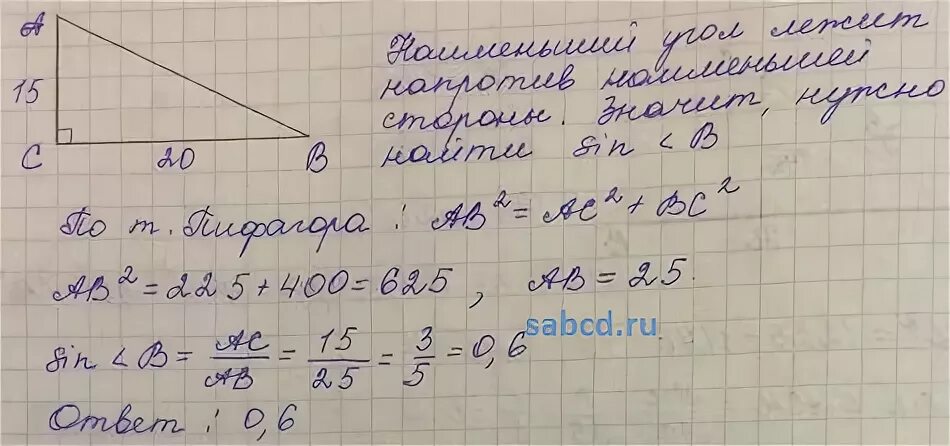 A
15
C
20
B
Наименьший угол лежит
напротив наименьшей
стороны. Значит, нужно
найти sin < B
По т. Пифагора : AB² = AC² + BC²
AB² = 225 + 400 = 625 , AB = 25.
sabcd.ru
sin < B = AC/AB = 15/25 = 3/5 = 0,6
Ответ : 0,6